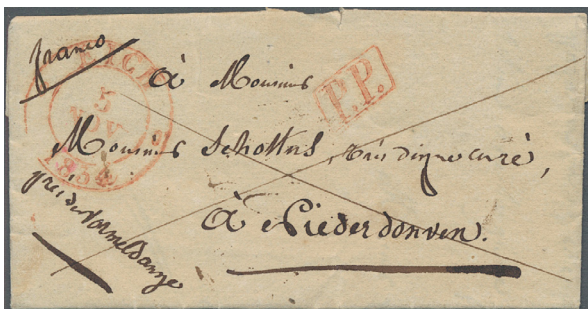 franco
EICH
5
NOV
1834
P.P.
à Monsieur
Monsieur Schottus, très digne curé,
à Niederdonven.
près de Wormeldange